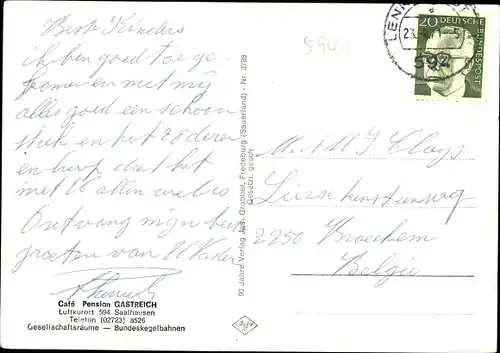 Beste Kinders
ik ben goed toege
komen en met mij
alles goed een schoon
stuk en het 28 deren
en hoop dat het
met U allen wel is
Ontvang mijn beste
groeten van U Vader
Café Pension GASTREICH
Luftkurort 594 Saalhausen
Telefon (02723) 8526
Gesellschaftsräume — Bundeskegelbahnen
80 Jahre Verlag Jos. Grobbel, Fredeburg (Sauerland) - Nr. 3788
Gesetzl. gesch.
594
LENN
23.
592
20 DEUTSCHE
BUNDESPOST
M. A. M J Clays
2250 Broechem
Belgie
Agfa